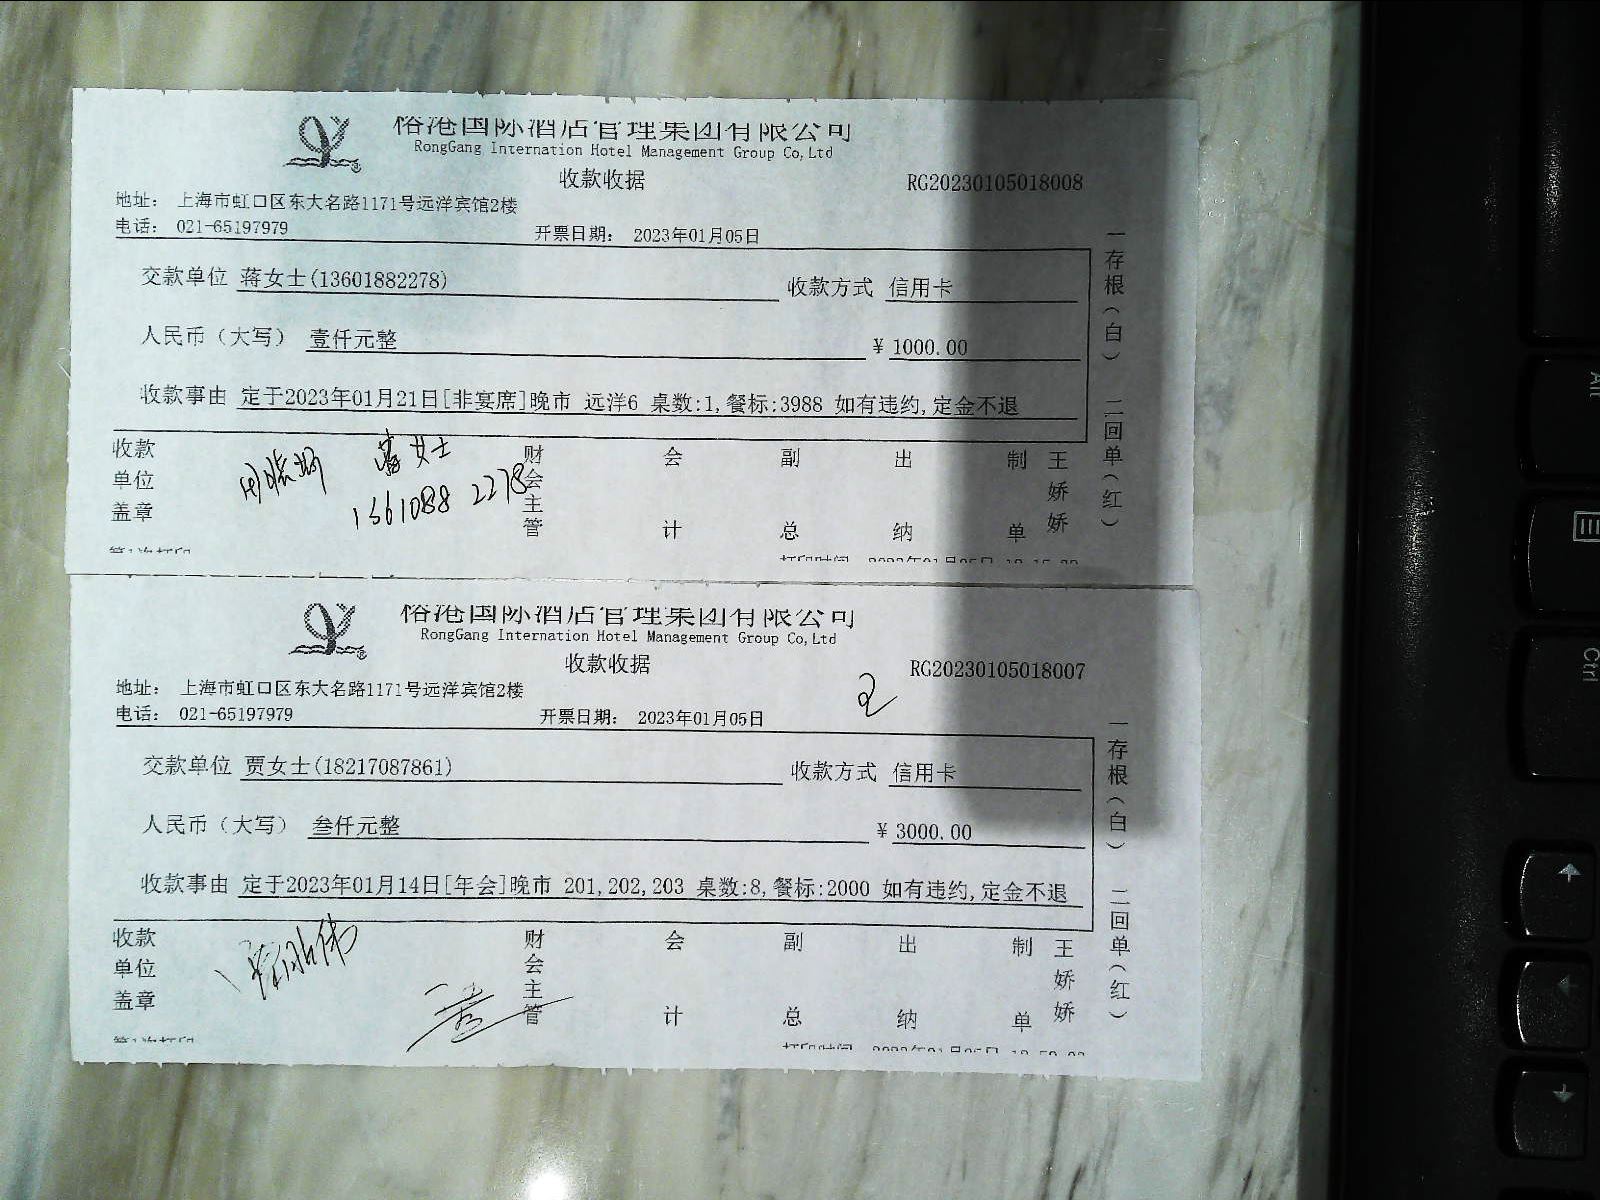 榕港国际酒店管理集团有限公司
RongGang Internation Hotel Management Group Co,Ltd
收款收据
RG20230105018008
地址： 上海市虹口区东大名路1171号远洋宾馆2楼
电话： 021-65197979
开票日期： 2023年01月05日
交款单位 蒋女士(13601882278)
收款方式 信用卡
人民币（大写） 壹仟元整
¥ 1000.00
收款事由 定于2023年01月21日[非宴席]晚市 远洋6 桌数:1,餐标:3988 如有违约,定金不退
一存根（白） 二回单（红）
收款单位盖章
蒋女士
1361088 2278
财会主管
会计
副总
出纳
制单
王娇娇
第1次打印
榕港国际酒店管理集团有限公司
RongGang Internation Hotel Management Group Co,Ltd
收款收据
RG20230105018007
地址： 上海市虹口区东大名路1171号远洋宾馆2楼
电话： 021-65197979
开票日期： 2023年01月05日
交款单位 贾女士(18217087861)
收款方式 信用卡
人民币（大写） 叁仟元整
¥ 3000.00
收款事由 定于2023年01月14日[年会]晚市 201,202,203 桌数:8,餐标:2000 如有违约,定金不退
一存根（白） 二回单（红）
收款单位盖章
财会主管
会计
副总
出纳
制单
王娇娇
第1次打印
Alt
Ctrl